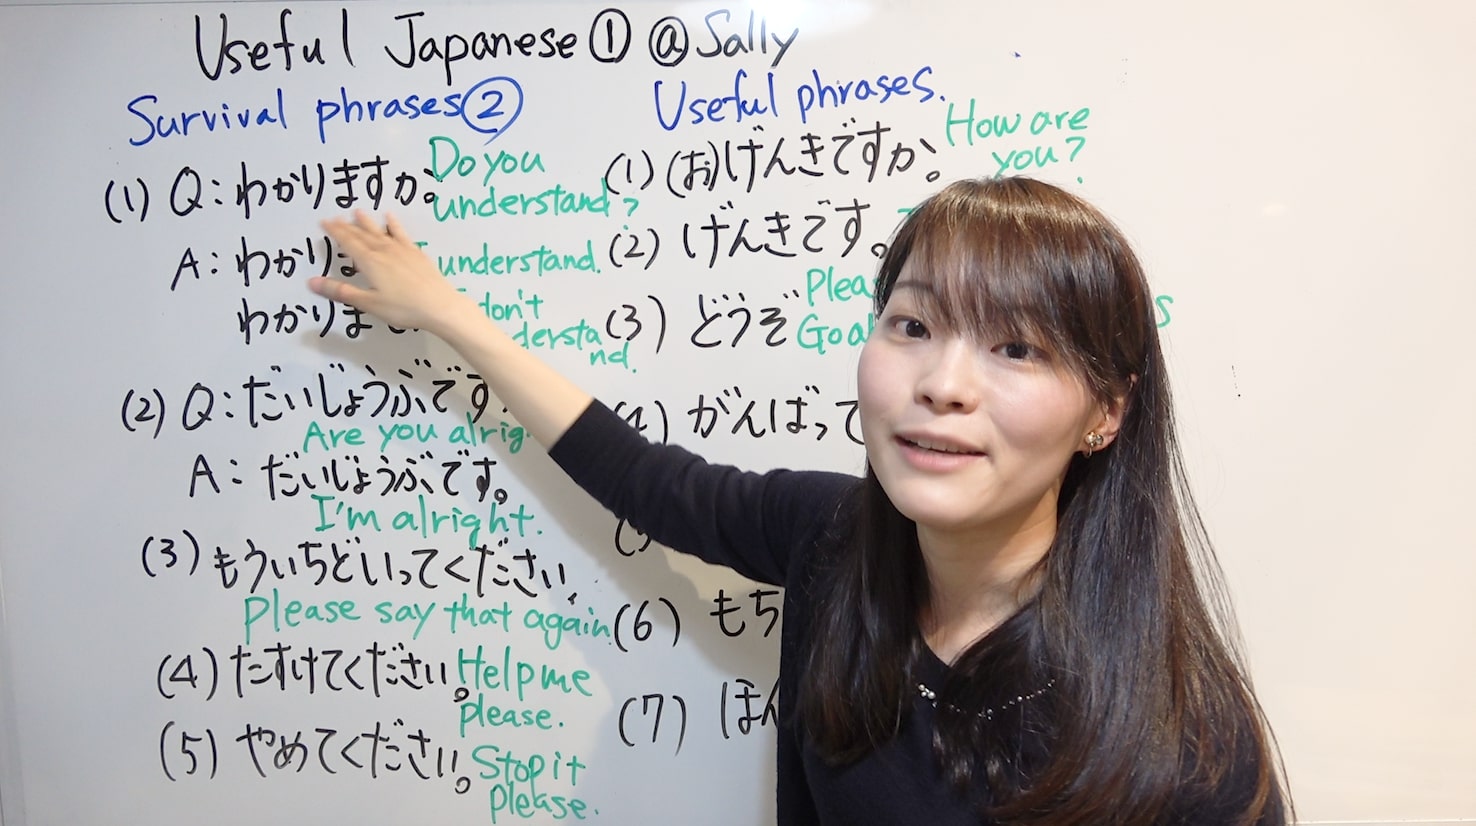 Useful Japanese① @Sally
Survival phrases②
(1) Q:わかりますか。
Do you
understand?
A:わかりま
understand.
わかりま
don't
understand.
(2) Q:だいじょうぶです
Are you alrig
A:だいじょうぶです。
I'm alright.
(3) もういちどいってください。
Please say that again.
(4) たすけてください。
Help me
please.
(5) やめてください。
Stop it
please.
Useful phrases.
(1) (お)げんきですか。
How are
you?
(2) げんきです。
(3) どうぞ
Plea
Goa
(4) がんばって
(6) もち
(7) ほん